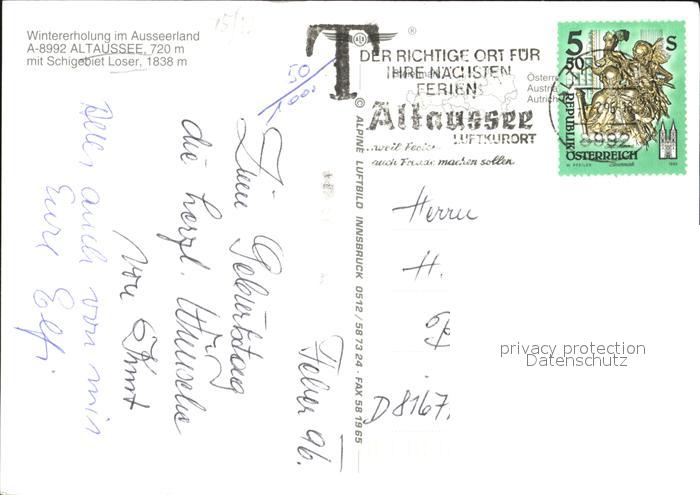 Wintererholung im Ausseerland
A-8992 ALTAUSSEE, 720 m
mit Schigebiet Loser, 1838 m
T
DER RICHTIGE ORT FÜR
IHRE NÄCHSTEN
FERIEN:
Altaussee
LUFTKURORT
...weil Ferien
auch Freude machen sollen
5 S
50
REPUBLIK
ÖSTERREICH
8992
ALPINE LUFTBILD INNSBRUCK 0512/58 73 24 · FAX 58 19 65
50/
Feber 96.
Zum Geburtstag
die herzl. Wünsche
von
Alles auch von mir
Eure Elfi
Herrn
H.
D 8167.
privacy protection
Datenschutz